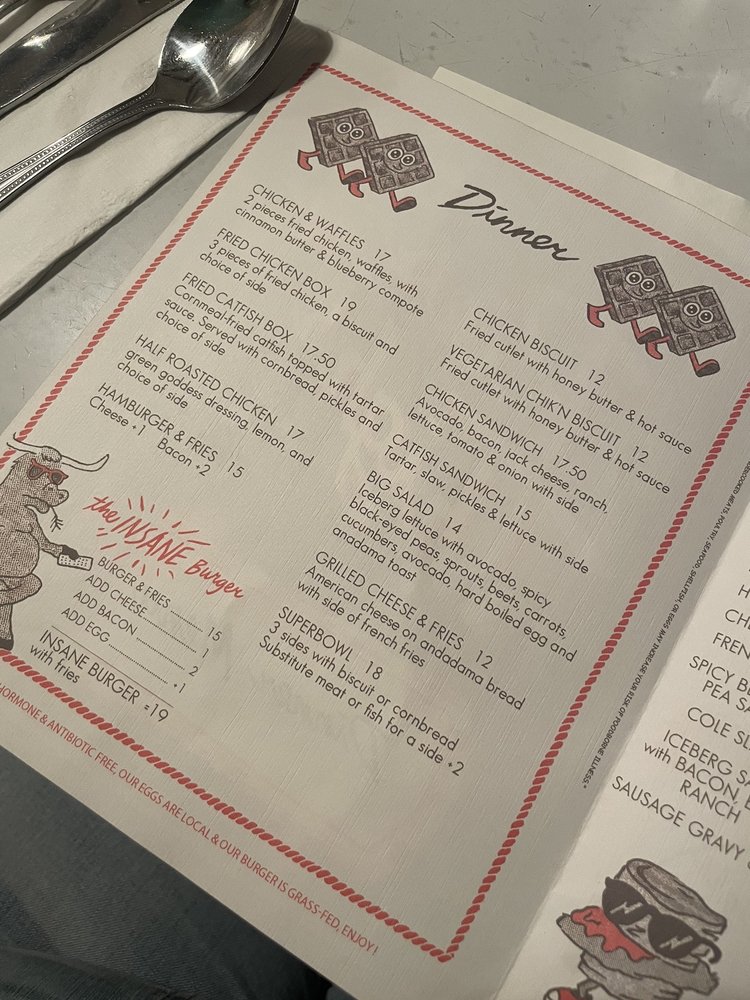 Dinner
CHICKEN & WAFFLES 17
2 pieces fried chicken, waffles, with
cinnamon butter & blueberry compote
FRIED CHICKEN BOX 19
3 pieces of fried chicken, a biscuit and
choice of side
FRIED CATFISH BOX 17.50
Cornmeal-fried catfish topped with tartar
sauce. Served with cornbread, pickles and
choice of side
HALF ROASTED CHICKEN 17
green goddess dressing, lemon, and
choice of side
HAMBURGER & FRIES 15
Cheese +1 Bacon +2
the INSANE Burger
BURGER & FRIES........ 15
ADD CHEESE................ 1
ADD BACON................ 2
ADD EGG................ +1
INSANE BURGER =19
with fries
CHICKEN BISCUIT 12
Fried cutlet with honey butter & hot sauce
VEGETARIAN CHIK'N BISCUIT 12
Fried cutlet with honey butter & hot sauce
CHICKEN SANDWICH 17.50
Avocado, bacon, jack cheese, ranch,
lettuce, tomato & onion with side
CATFISH SANDWICH 15
Tartar, slaw, pickles & lettuce with side
BIG SALAD 14
Iceberg lettuce with avocado, spicy
black-eyed peas, sprouts, beets, carrots,
cucumbers, avocado, hard boiled egg and
anadama toast
GRILLED CHEESE & FRIES 12
American cheese on andadama bread
with side of french fries
SUPERBOWL 18
3 sides with biscuit or cornbread
Substitute meat or fish for a side +2
HORMONE & ANTIBIOTIC FREE, OUR EGGS ARE LOCAL & OUR BURGER IS GRASS-FED, ENJOY!
MEATS, POULTRY, SEAFOOD, SHELLFISH, OR EGGS MAY INCREASE YOUR RISK OF FOODBORNE ILLNESS.*
SPICY
PEA
COLE
ICEBERG
with BACON,
RANCH
SAUSAGE GRAVY